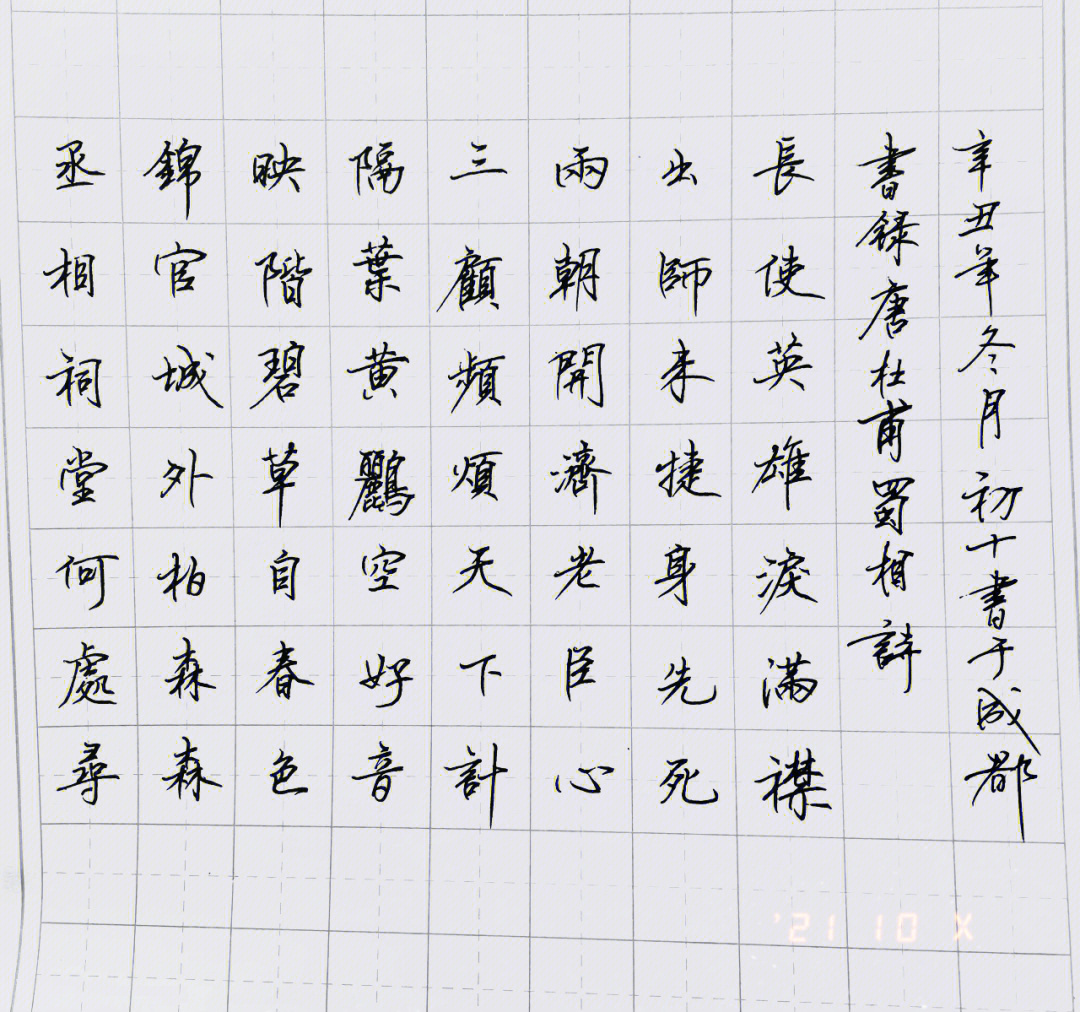 丞相祠堂何處尋
錦官城外柏森森
映階碧草自春色
隔葉黄鸝空好音
三顧頻煩天下計
兩朝開濟老臣心
出師未捷身先死
長使英雄淚滿襟
書録唐杜甫蜀相詩
辛丑年冬月初十書于成都
'21 10 X